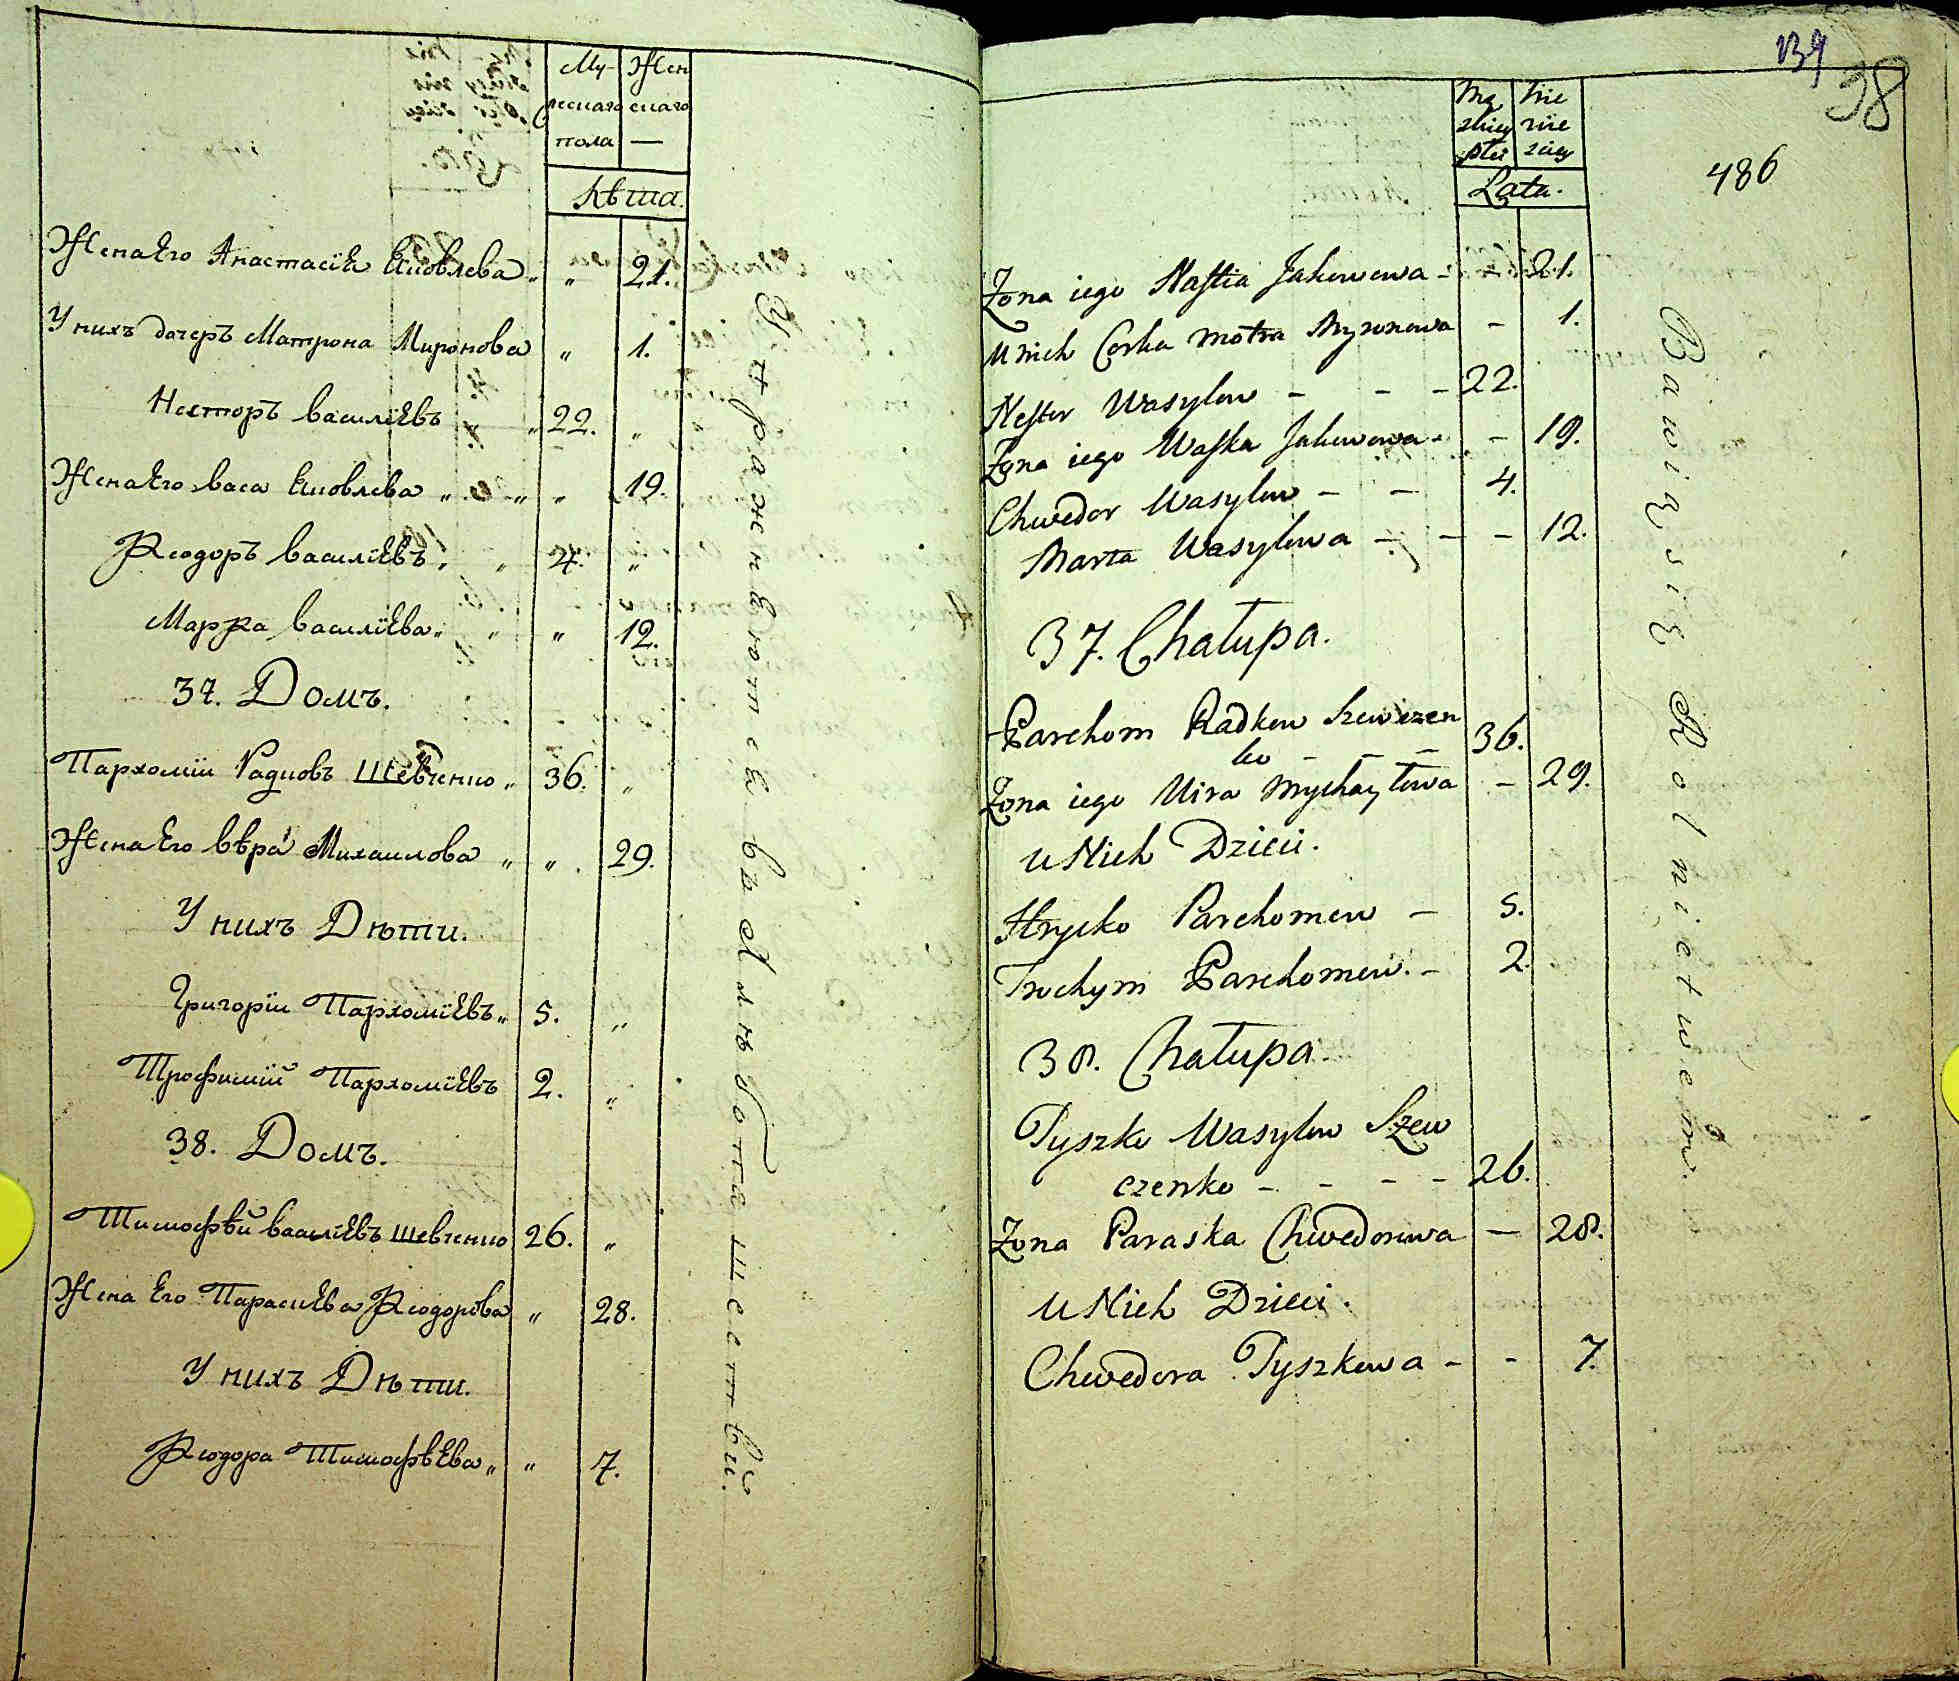 Му-
жескаго
пола
Жен
скаго
—
Лѣта.
Жена Его Анастасіѣ Яковлева „ „ 21.
У нихъ дочеръ Матрона Миронова „ 1.
Несторъ Василіевъ „ „ 22. „
Жена Его Васа Яковлева „ „ „ 19.
Ѳеодоръ Василіевъ „ „ 4. „
Марѳа Василіева „ „ „ 12.
37. Домъ.
Пархомiи Радковъ Шевченко „ 36. „
Жена Его Вѣра Михаилова „ „ 29.
У нихъ Дѣти.
Григоріи Пархоміевъ „ 5. „
Трофимій Пархоміевъ 2. „
38. Домъ.
Тимофѣй Василіевъ Шевченко 26. „
Жена Его Параскева Ѳеодорова „ 28.
У нихъ Дѣти.
Ѳеодора Тимофѣева „ „ 7.
Упражняются въ Хлѣбопашествѣ.
139
38
486
Mę
skiey
płci
Że
ńs
kiey
Lata.
Żona iego Nastia Jakowowa - - 21.
U nich Corka Motra Myronowa - 1.
Nester Wasylow - - - 22.
Żona iego Waska Jakowowa - - 19.
Chwedor Wasylow - - 4.
Marta Wasylowa - - - 12.
37. Chałupa.
Parchom Radkow Szewczen
ko - - - 36.
Żona iego Wira Mychayłowa - 29.
U Nich Dzieci.
Hrycko Parchomow - 5.
Trochym Parchomow. - 2.
38. Chałupa.
Tyszko Wasylow Szew
czenko - - - - 26.
Żona Paraska Chwedorowa - 28.
U Nich Dzieci.
Chwedora Tyszkowa - - 7.
Bawią się Rolnictwem.